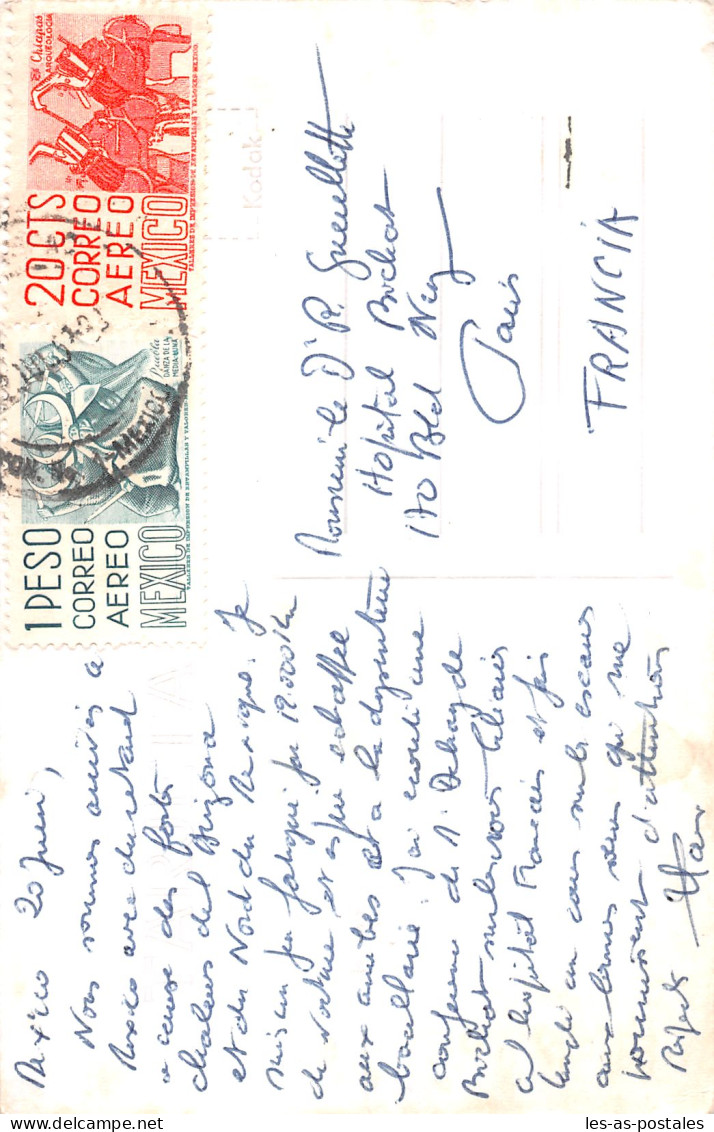 Mexico 20 Juin,
Nous sommes arrivés à
Mexico avec du retard
a cause des forts
chaleurs del Arizona
et du Nord du Mexique. Je
suis un peu fatigué par 12.000 Km
de voiture et ai pu echappée
aux amibes et a la dysenterie
bacillaire. J'ai ecouté une
conference de M. Debray de
Bichat sur les voies biliaires
al hospital Français et fais
lundi un cours sur les
qui me
d'attentions
Monsieur le Dr R. Gueullette
Hopital Bichat
170 Bld Ney
Paris
FRANCIA
Kodak
Chiapas
ARQUEOLOGIA
20 CTS
CORREO
AEREO
MEXICO
TALLERES DE IMPRESION DE ESTAMPILLAS Y VALORES-MEXICO
Puebla
DANZA DE LA
MEDIA LUNA
1 PESO
CORREO
AEREO
MEXICO
TALLERES DE IMPRESION DE ESTAMPILLAS Y VALORES-MEXICO
les-as-postales